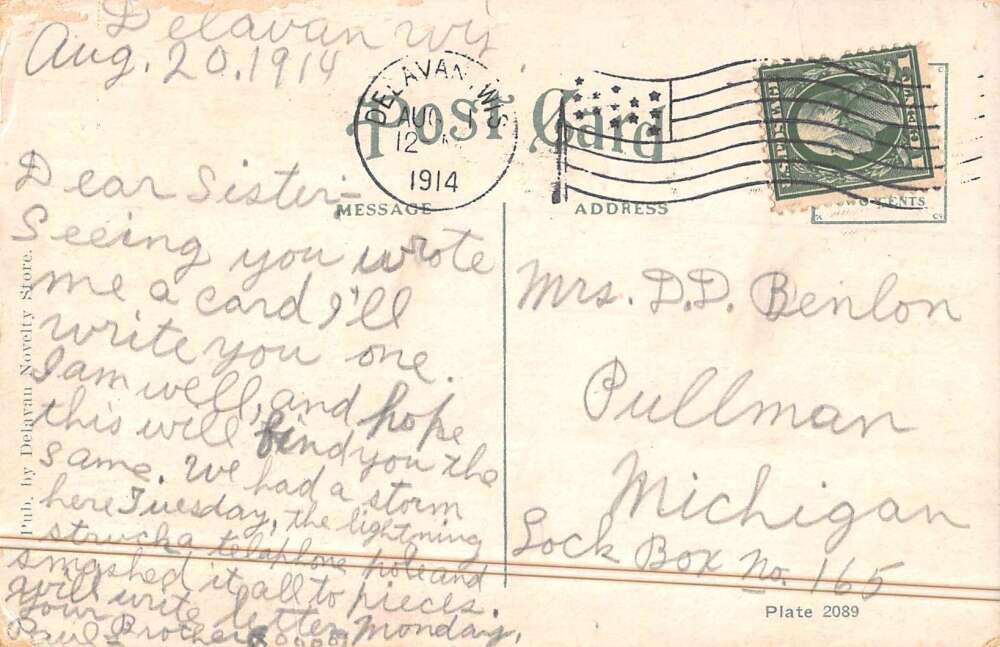 Delavan Wis
Aug. 20. 1914
DELAVAN, WIS
AUG
12 M
1914
Post Card
1 CENT 1
TWO CENTS
MESSAGE
ADDRESS
Dear Sister:-
Seeing you wrote
me a card I'll
write you one.
I am well, and hope
this will find you the
same. We had a storm
here Tuesday, the lightning
struck a telaphone pole and
smashed it all to pieces.
Will write letter Monday,
Your Brother
Paul-
Mrs. D.D. Benlon
Pullman
Michigan
Lock Box No. 165
Pub. by Delavan Novelty Store.
Plate 2089